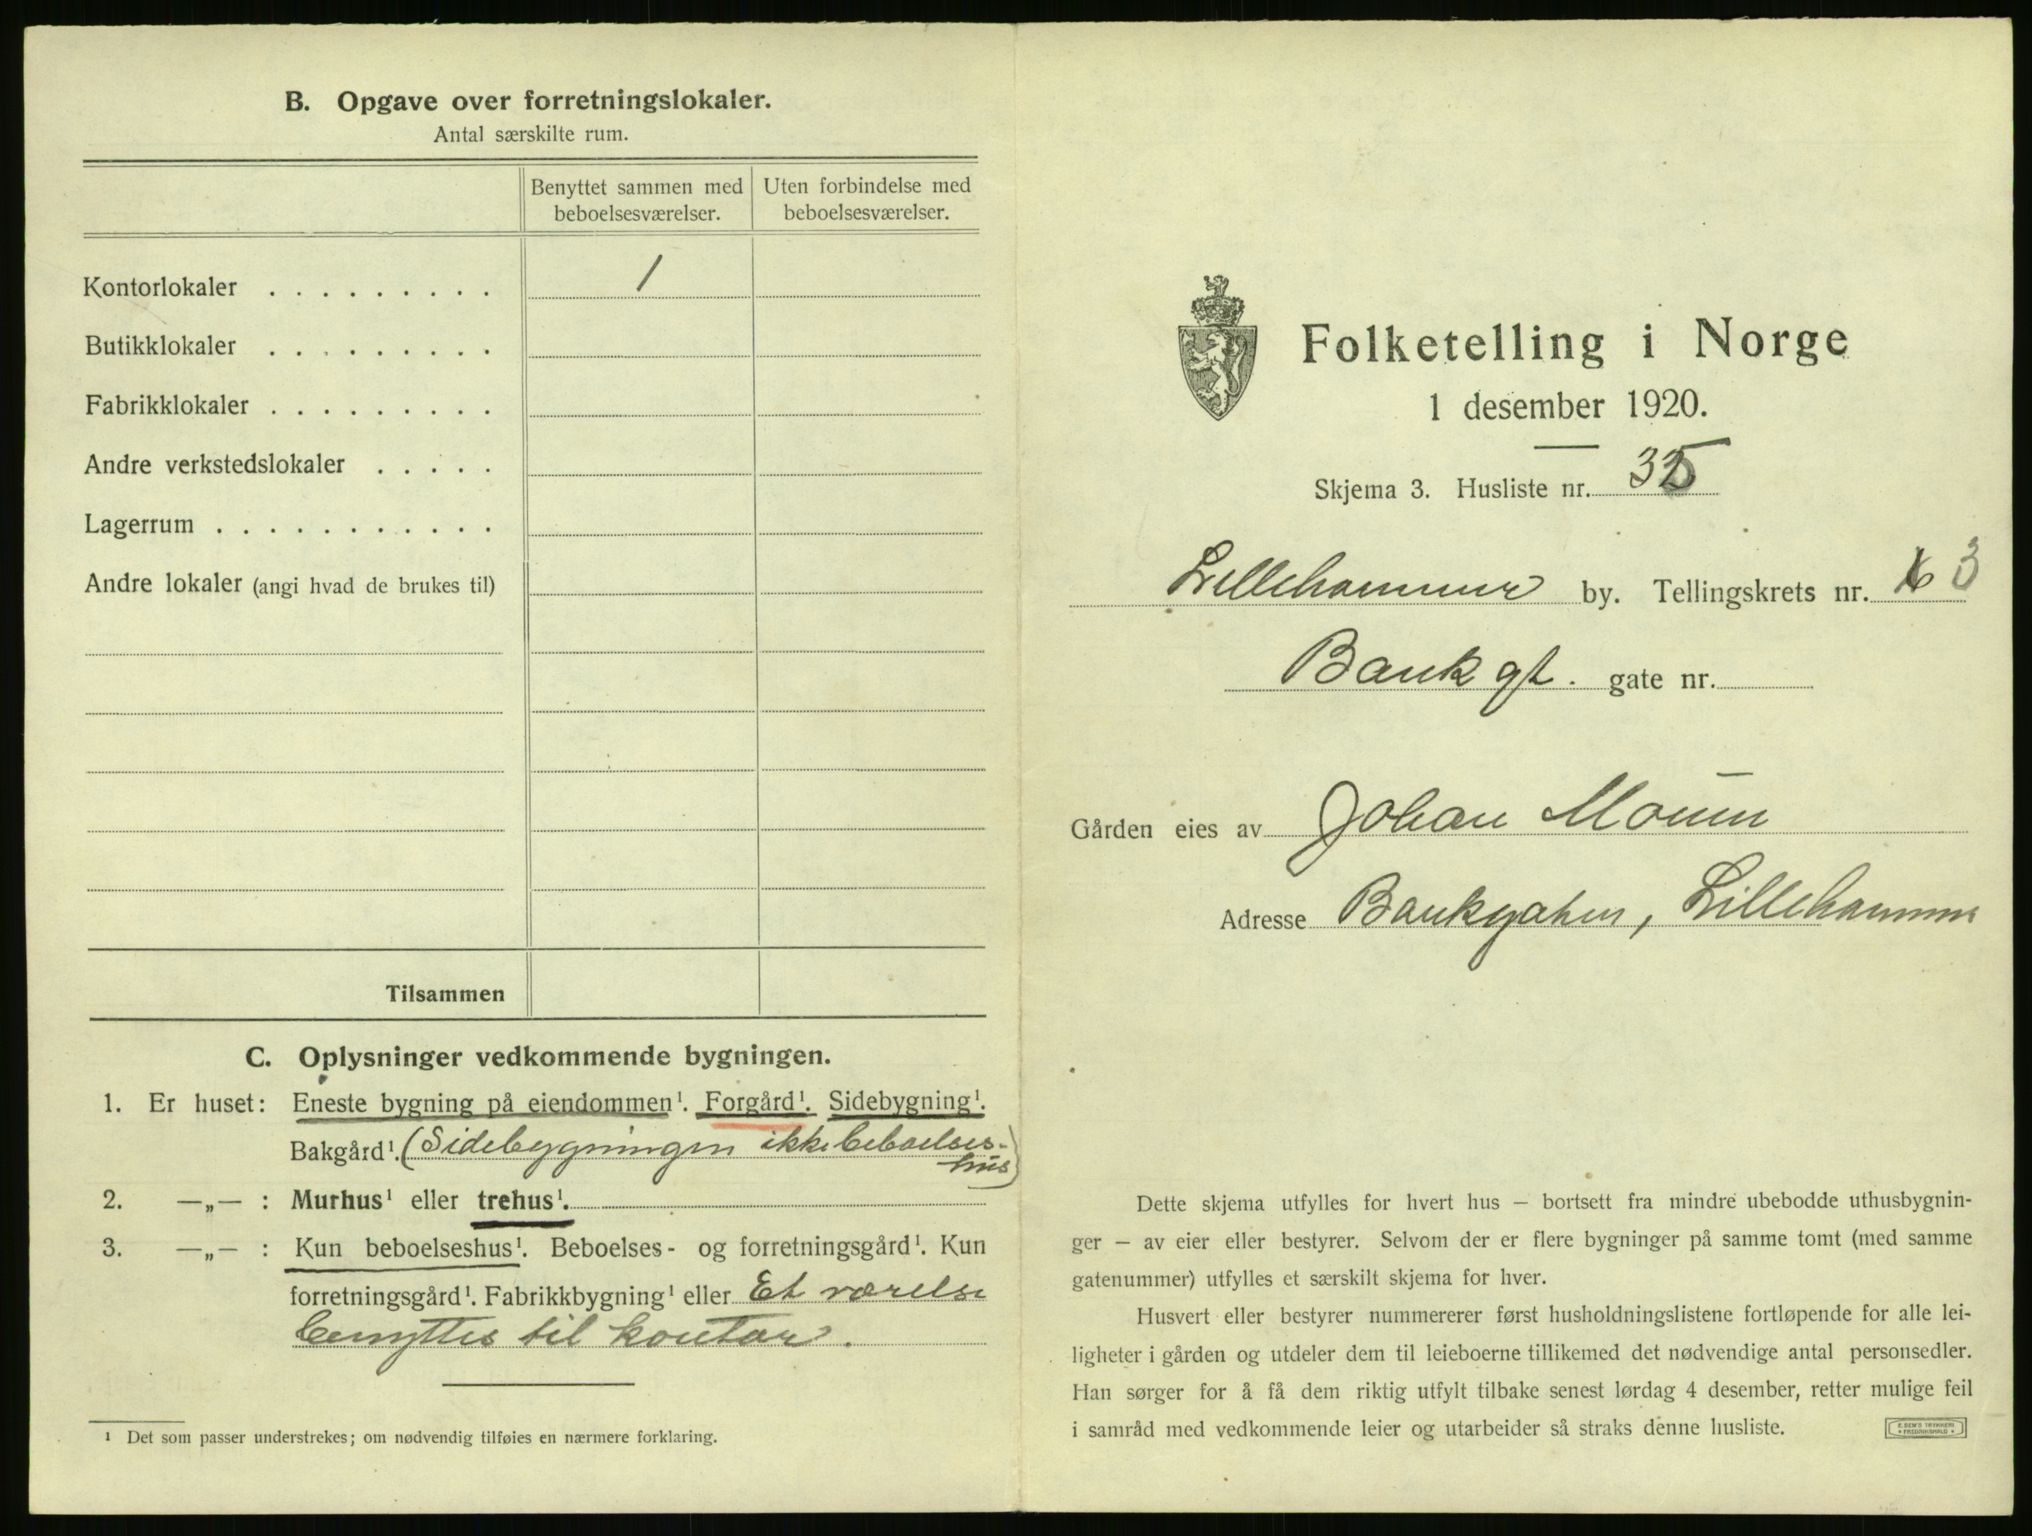 B. Opgave over forretningslokaler.
Antal særskilte rum.
Benyttet sammen med beboelsesværelser.
Uten forbindelse med beboelsesværelser.
Kontorlokaler . . . . . . . . . 1
Butikklokaler . . . . . . . . .
Fabrikklokaler . . . . . . . . .
Andre verkstedslokaler . . . . .
Lagerrum . . . . . . . . . . .
Andre lokaler (angi hvad de brukes til)
Tilsammen
C. Oplysninger vedkommende bygningen.
1. Er huset: Eneste bygning på eiendommen¹. Forgård¹. Sidebygning¹.
Bakgård¹. (Sidebygningen ikke beboelses-
hus)
2. —„— : Murhus¹ eller trehus¹.
3. —„— : Kun beboelseshus¹. Beboelses- og forretningsgård¹. Kun
forretningsgård¹. Fabrikkbygning¹ eller Et værelse
benyttes til kontor.
¹ Det som passer understrekes; om nødvendig tilføies en nærmere forklaring.
Folketelling i Norge
1 desember 1920.
Skjema 3. Husliste nr. 35
Lillehammer by. Tellingskrets nr. 3
Bank gt. gate nr.
Gården eies av Johan Moum
Adresse Bankgaten, Lillehammer
Dette skjema utfylles for hvert hus – bortsett fra mindre ubebodde uthusbygnin-
ger – av eier eller bestyrer. Selvom der er flere bygninger på samme tomt (med samme
gatenummer) utfylles et særskilt skjema for hver.
Husvert eller bestyrer nummererer først husholdningslistene fortløpende for alle lei-
ligheter i gården og utdeler dem til leieboerne tillikemed det nødvendige antal personsedler.
Han sørger for å få dem riktig utfylt tilbake senest lørdag 4 desember, retter mulige feil
i samråd med vedkommende leier og utarbeider så straks denne husliste.
E. SEM'S TRYKKERI
• FREDRIKSHALD •